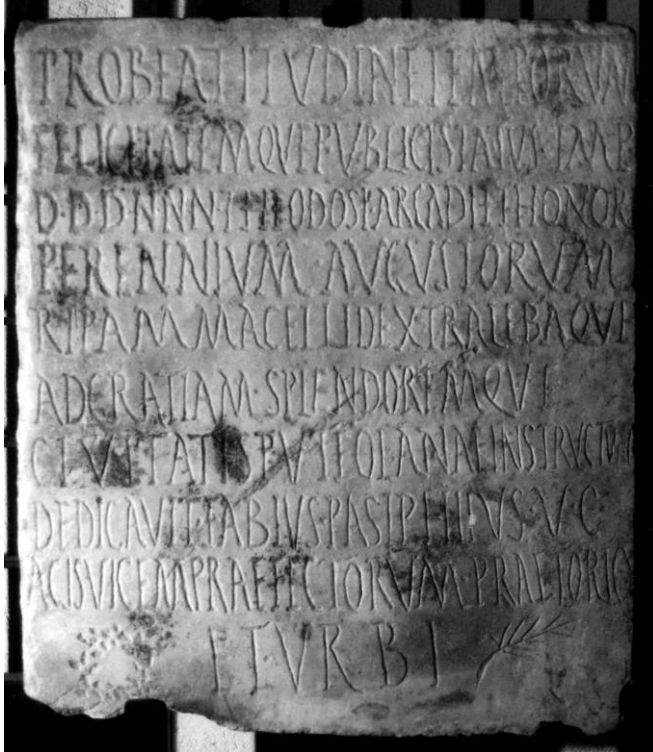 PROBEATITVDINETEMPORVM
FELICITATEMQVEPVBLICISTATVS·IMPP
D·D·D·N·N·N·THEODOSI·ARCADIETHONORI
PERENNIVM AVGVSTORVM
RIPAM MACELLIDEXTRALEBAQVE
ADGRATIAM·SPLENDOREMQVE
CIVITATISPVTEOLANAEINSTRVCTAM
DEDICAVIT·FABIVS·PASIPHILVS·V·C
AGISVICEMPRAEFECTORVM·PRAETORIO
ETVRBI